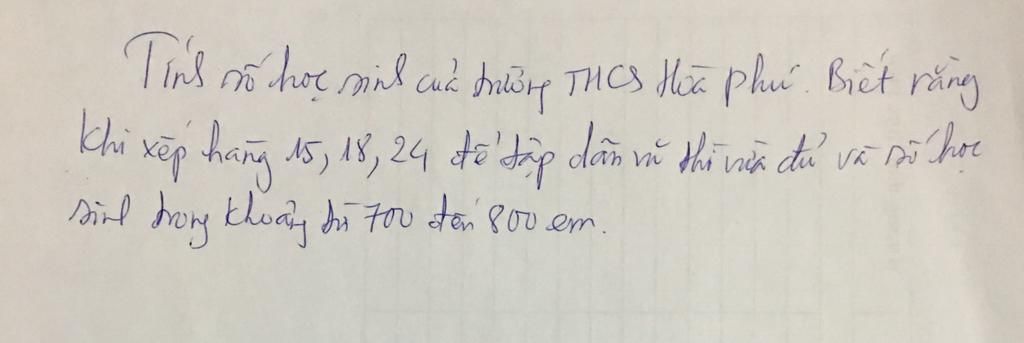 Tính số học sinh của trường THCS Hòa Phú. Biết rằng
khi xếp hàng 15, 18, 24 để tập dân vũ thì vừa đủ và số học
sinh trong khoảng từ 700 đến 800 em.